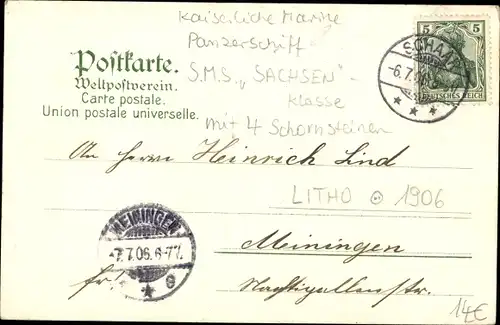 Kaiserliche Marine
Panzerschiff
S.M.S. „SACHSEN"-
Klasse
mit 4 Schornsteinen
5 5
DEUTSCHES REICH
-6.7.06
Postkarte.
Weltpostverein.
Carte postale.
Union postale universelle.
An Herrn Heinrich Lind
LITHO 1906
MEININGEN
-7.7.06.6-7V.
e
Meiningen
fr.
Nachtigallenstr.
14€